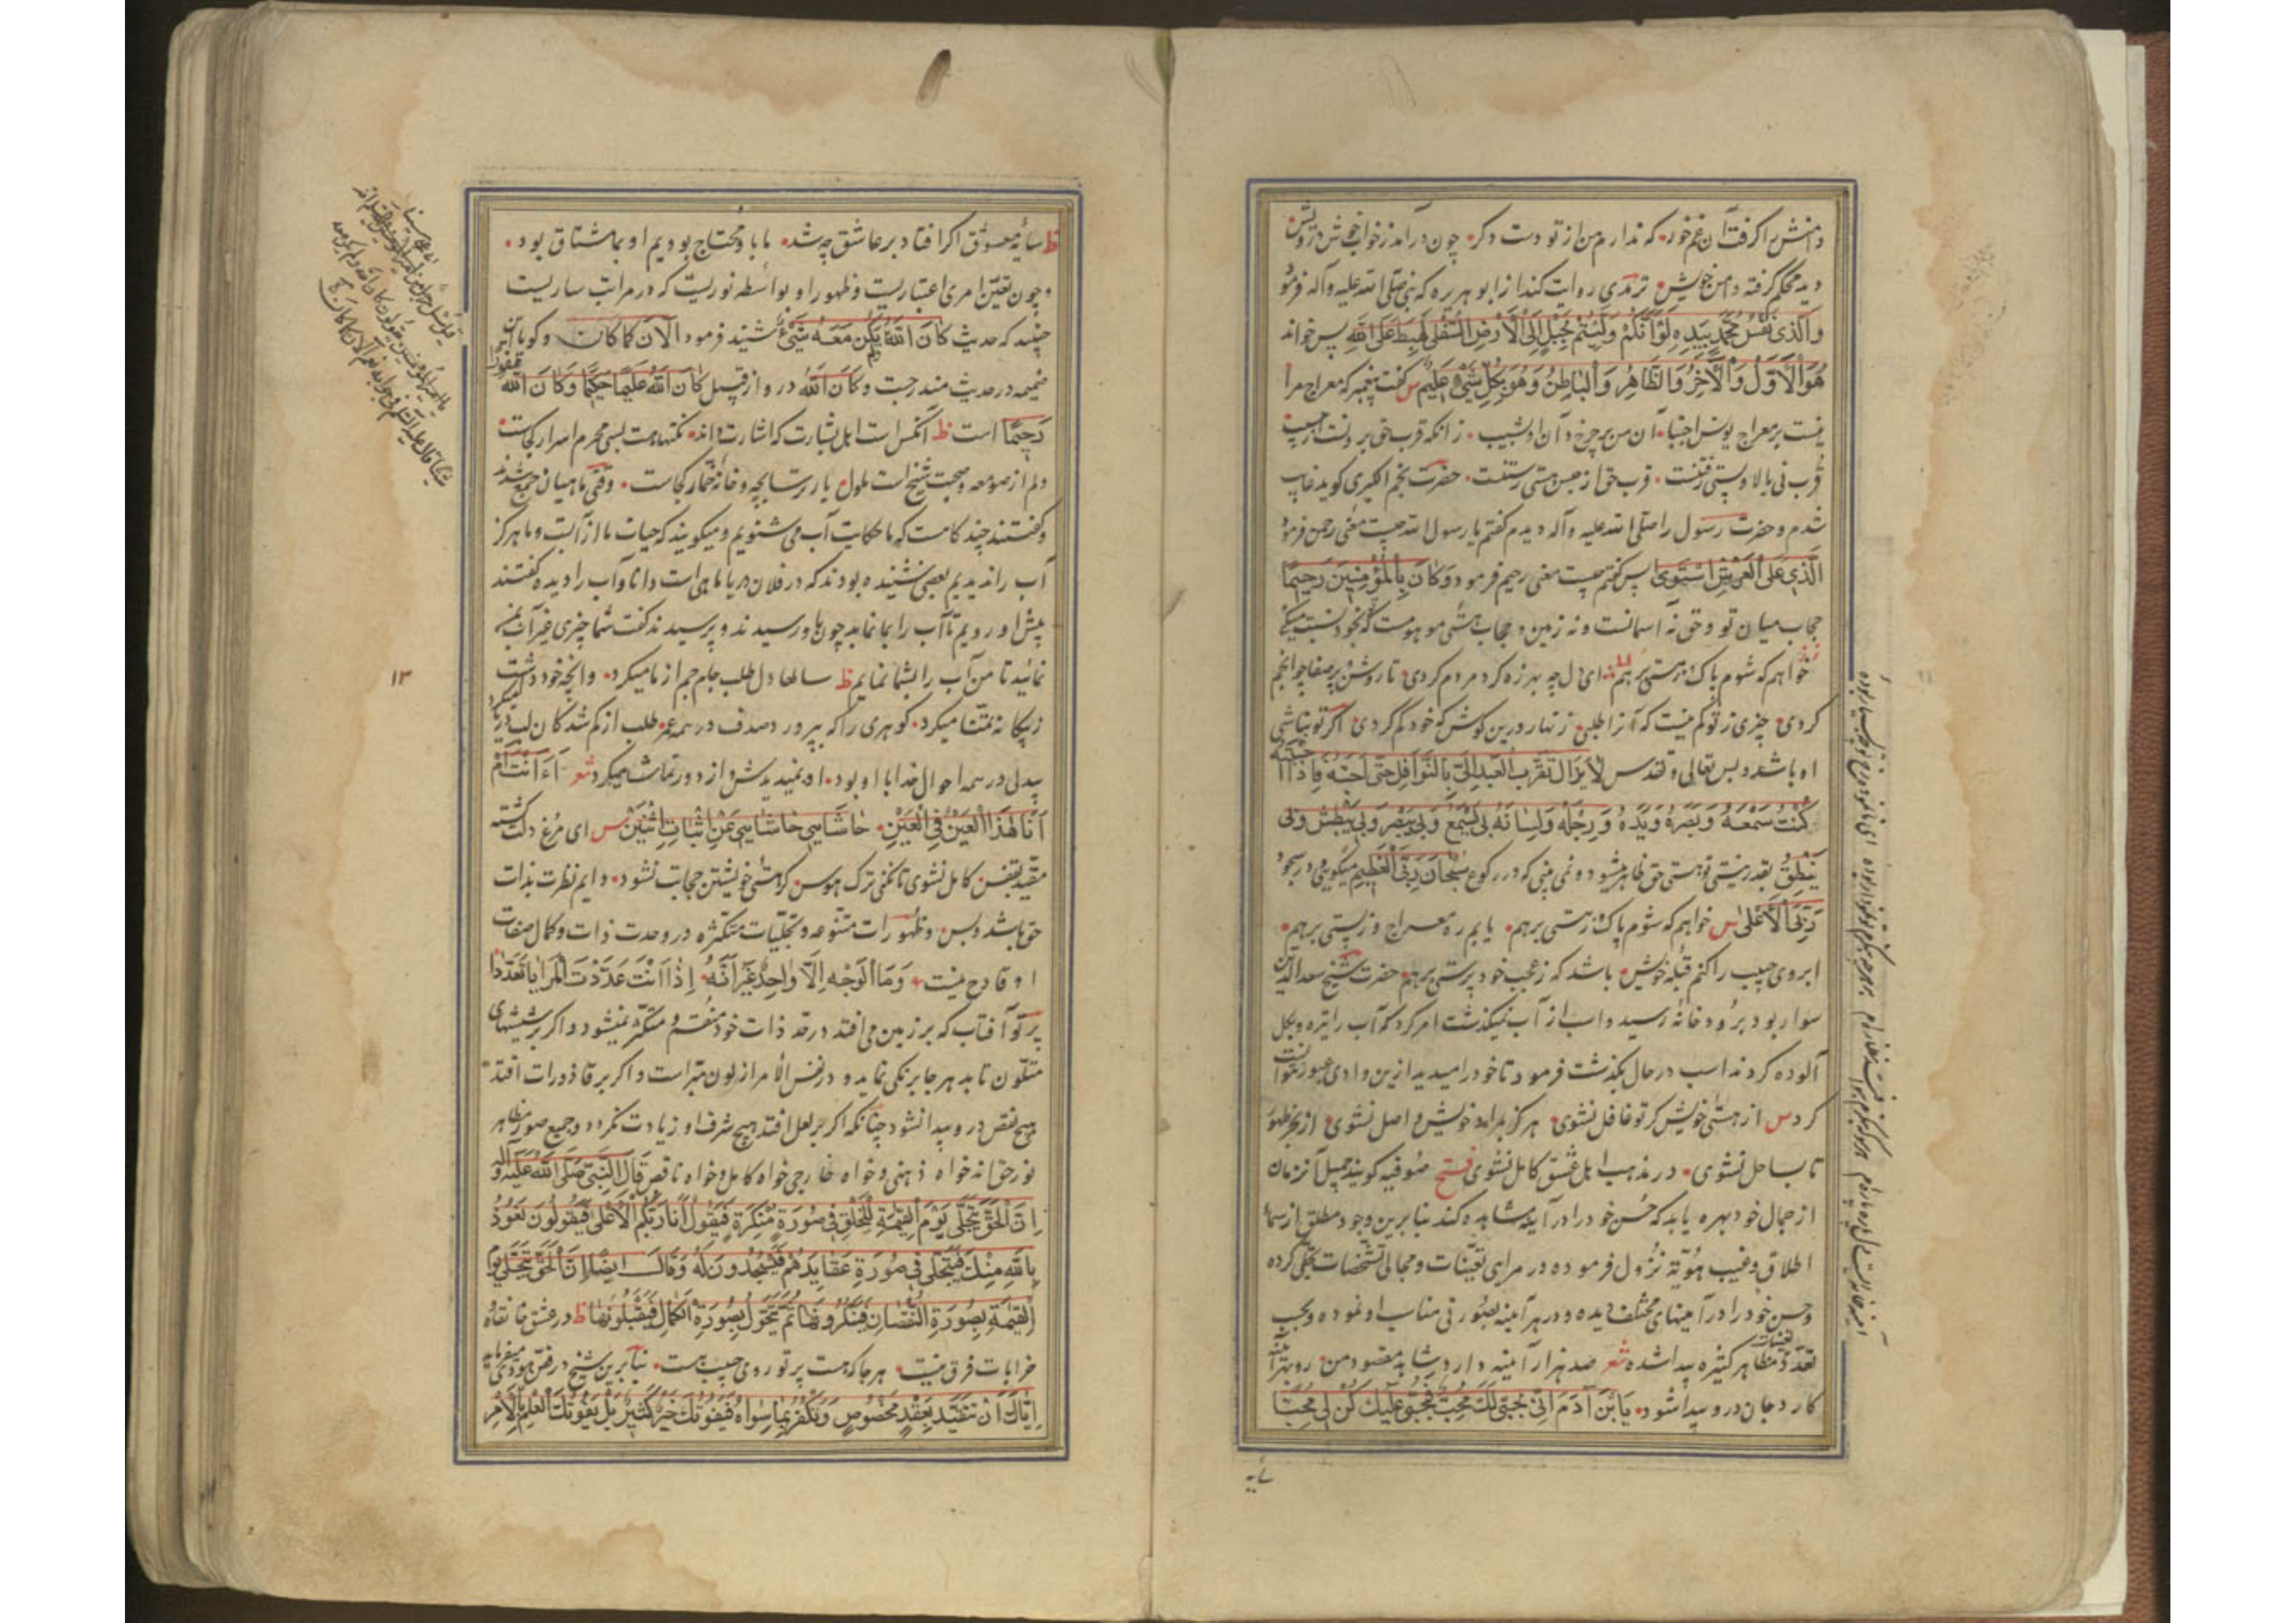 دامنش بگرفت آن غم خور که ندارم من از تو دست دگر چون درآمد ز خواب خوش درویش
دید محکم گرفته دامن خویش ترمذی روایت کند از ابو هریره که نبی صلی الله علیه وآله فرمود
وَالَّذی نَفْسُ مُحَمَّدٍ بِیَدِهِ لَوْ اَنَّکُمْ دَلَّیْتُمْ بِحَبْلٍ اِلَی الْاَرْضِ السُّفْلی لَهَبَطَ عَلَی اللهِ پس خواند
هُوَ الْاَوَّلُ وَالْاخِرُ وَالظَّاهِرُ وَالْبَاطِنُ وَهُوَ بِکُلِّ شَیْءٍ عَلِیمٌ س گفت پیغمبر که معراج مرا
نیست بر معراج یونس اجتبا آن من بر چرخ و آن او نشیب زانکه قرب حق برونست از حسیب
قرب نی بالا و پستی رفتنست قرب حق از حبس هستی رستنست حضرت نجم الکبری گوید غایب
شدم و حضرت رسول را صلی الله علیه وآله دیدم گفتم یا رسول الله چیست معنی رحمن فرمود
الَّذی عَلَی الْعَرْشِ اسْتَوی پس گفتم چیست معنی رحیم فرمود وَکَانَ بِالْمُؤْمِنِینَ رَحِیمًا
حجاب میان تو و حق نه آسمانست و نه زمین و حجاب هستی موهومست که بخود نسبت میکنی
خواهم که شوم پاک ز هستی برهم ای دل چه بهرزه گرد مردم گردی تا روشن و پر صفا چو انجم
گردی چیزی ز تو گم نیست که آنرا طلبی زنهار درین کوش که خود گم گردی اگر تو نباشی
او باشد و بس تعالی و تقدس لَا یَزَالُ یَتَقَرَّبُ الْعَبْدُ اِلَیَّ بِالنَّوَافِلِ حَتّی اُحِبَّهُ فَاِذَا اَحْبَبْتُهُ
کُنْتُ سَمْعَهُ وَبَصَرَهُ وَیَدَهُ وَرِجْلَهُ وَلِسَانَهُ بی یَسْمَعُ وَبی یُبْصِرُ وَبی یَبْطِشُ وَبی
یَنْطِقُ بقدر نیستی تو هستی حق ظاهر میشود و نمی بینی که در رکوع سُبْحَانَ رَبِّیَ الْعَظِیمِ میگویی و در سجود
رَبِّیَ الْاَعْلی س خواهم که شوم پاک ز هستی برهم یابم ره معراج و ز پستی برهم
ابروی حبیب را کنم قبله خویش باشد که ز عجب خود پرستی برهم حضرت شیخ سعد الدین
سوار بود برودخانه رسید و اسب از آب نمیگذشت امر کرد که آب را تیره و بگل
آلوده کردند اسب در حال بگذشت فرمود تا خود را میدید ازین وادی عبور نتوانست
کرد س از هستی خویش گر تو غافل نشوی هرگز بمراد خویش واصل نشوی از بحر ظهور
تا بساحل نشوی در مذهب اهل عشق کامل نشوی فتح صوفیه گویند جمیل آنزمان
از جمال خود بهره یابد که حسن خود را در آینه مشاهده کند بنابرین وجود مطلق از سماء
اطلاق و غیب هویه نزول فرموده در مرایی تعینات و مجالی تشخصات تجلی کرده
وحسن خود را در آینهای مختلف دیده و در هر آینه بصورتی مناسب او نموده و بحسب
تعدد تعینات مظاهر کثیره پیدا شده شعر صد هزار آینه دارد شاهد مقصود من رو بهر آینه
کآرد جان درو پیدا شود یَابْنَ آدَمَ اِنّی بِحَقّی لَکَ مُحِبٌّ فَبِحَقّی عَلَیْکَ کُنْ لی مُحِبًّا
سایه
ظ سایه معشوق اگر افتاد بر عاشق چه شد ما باو محتاج بودیم او بما مشتاق بود
و چون تعین امری اعتباریست و ظهور او بواسطه نوریست که در مراتب ساریست
جنید که حدیث کَانَ اللهُ وَلَمْ یَکُنْ مَعَهُ شَیْءٌ شنید فرمود اَلْآنَ کَمَا کَانَ و گویا این
ضمیمه در حدیث مندرجست و کَانَ اللهُ درو از قبیل کَانَ اللهُ عَلِیمًا حَکِیمًا وَکَانَ اللهُ غَفُورًا
رَحِیمًا است ظ آنکس است اهل بشارت که اشارت داند نکتها هست بسی محرم اسرار کجاست
دلم از صومعه و صحبت شیخ است ملول یار ترسابچه و خانه خمار کجاست وقتی ماهیان جمع شدند
و گفتند چند گاهست که ما حکایت آب می شنویم و میگویند که حیات ما از آبست و ما هرگز
آب را ندیدیم بعضی شنیده بودند که در فلان دریا ماهی است دانا و آب را دیده گفتند
پیش او رویم تا آب را بما نماید چون باو رسیدند و پرسیدند گفت شما چیزی غیر آب بمن
نمائید تا من آب را بشما نمایم ظ سالها دل طلب جام جم از ما میکرد وانچه خود داشت
ز بیگانه تمنا میکرد گوهری را که بپرورد صدف در همه عمر طلب از گم شدگان لب دریا میکرد
بیدلی در همه احوال خدا با او بود او نمیدیدش و از دور تماشا میکرد شعر اَءَ اَنْتَ اَمْ
اَنَا هٰذَا الْعَیْنُ فِی الْعَیْنِ حَاشَایَ حَاشَایَ مِنْ اِثْبَاتِ اِثْنَیْنِ س ای مرغ دلت گشته
مقید بقفس کامل نشوی تا نکنی ترک هوس گر هستی خویشتن حجابت نشود دایم نظرت بذات
حق باشد و بس و ظهورات متنوعه و تجلیات متکثره در وحدت ذات و کمال صفات
او قادح نیست وَمَا الْوَجْهُ اِلَّا وَاحِدٌ غَیْرَ اَنَّهُ اِذَا اَنْتَ عَدَّدْتَ الْمَرَایَا تَعَدَّدَا
پرتو آفتاب که بر زمین می افتد در حد ذات خود منقسم و متکثر نمیشود و اگر بر شیشهای
متلون تابد هر جا برنگی نماید و در نفس الامر از لون مبراست و اگر بر قاذورات افتد
هیچ نقص درو پیدا نشود چنانکه اگر بر لعل افتد هیچ شرف او زیادت نگردد و جمیع صور مظاهر
نور حق اند خواه ذهنی و خواه خارجی خواه کامل و خواه ناقص قَالَ النَّبِیُّ صَلَّی اللهُ عَلَیْهِ وَآلِهِ
اِنَّ الْحَقَّ یَتَجَلّی یَوْمَ الْقِیٰمَةِ لِلْخَلْقِ فِی صُورَةٍ مُنْکَرَةٍ فَیَقُولُ اَنَا رَبُّکُمُ الْاَعْلی فَیَقُولُونَ نَعُوذُ
بِاللهِ مِنْکَ فَیَتَجَلّی فِی صُورَةِ عَقَایِدِهِمْ فَیَسْجُدُونَ لَهُ وَقَالَ اَیْضًا اِنَّ الْحَقَّ یَتَجَلّی یَوْمَ
الْقِیٰمَةِ بِصُورَةِ النُّقْصَانِ فَیُنْکِرُونَهَا ثُمَّ یَتَحَوَّلُ بِصُورَةِ الْکَمَالِ فَیَقْبَلُونَهَا ظ در عشق خانقاه
خرابات فرق نیست هر جا که هست پرتو روی حبیب هست بنابرین شیخ در فص هودی میفرماید
اِیَّاکَ اَنْ تَتَقَیَّدَ بِعَقْدٍ مَخْصُوصٍ وَتَکْفُرَ بِمَا سِوَاهُ فَیَفُوتُکَ خَیْرٌ کَثِیرٌ بَلْ یَفُوتُکَ الْعِلْمُ بِالْاَمْرِ
١٣